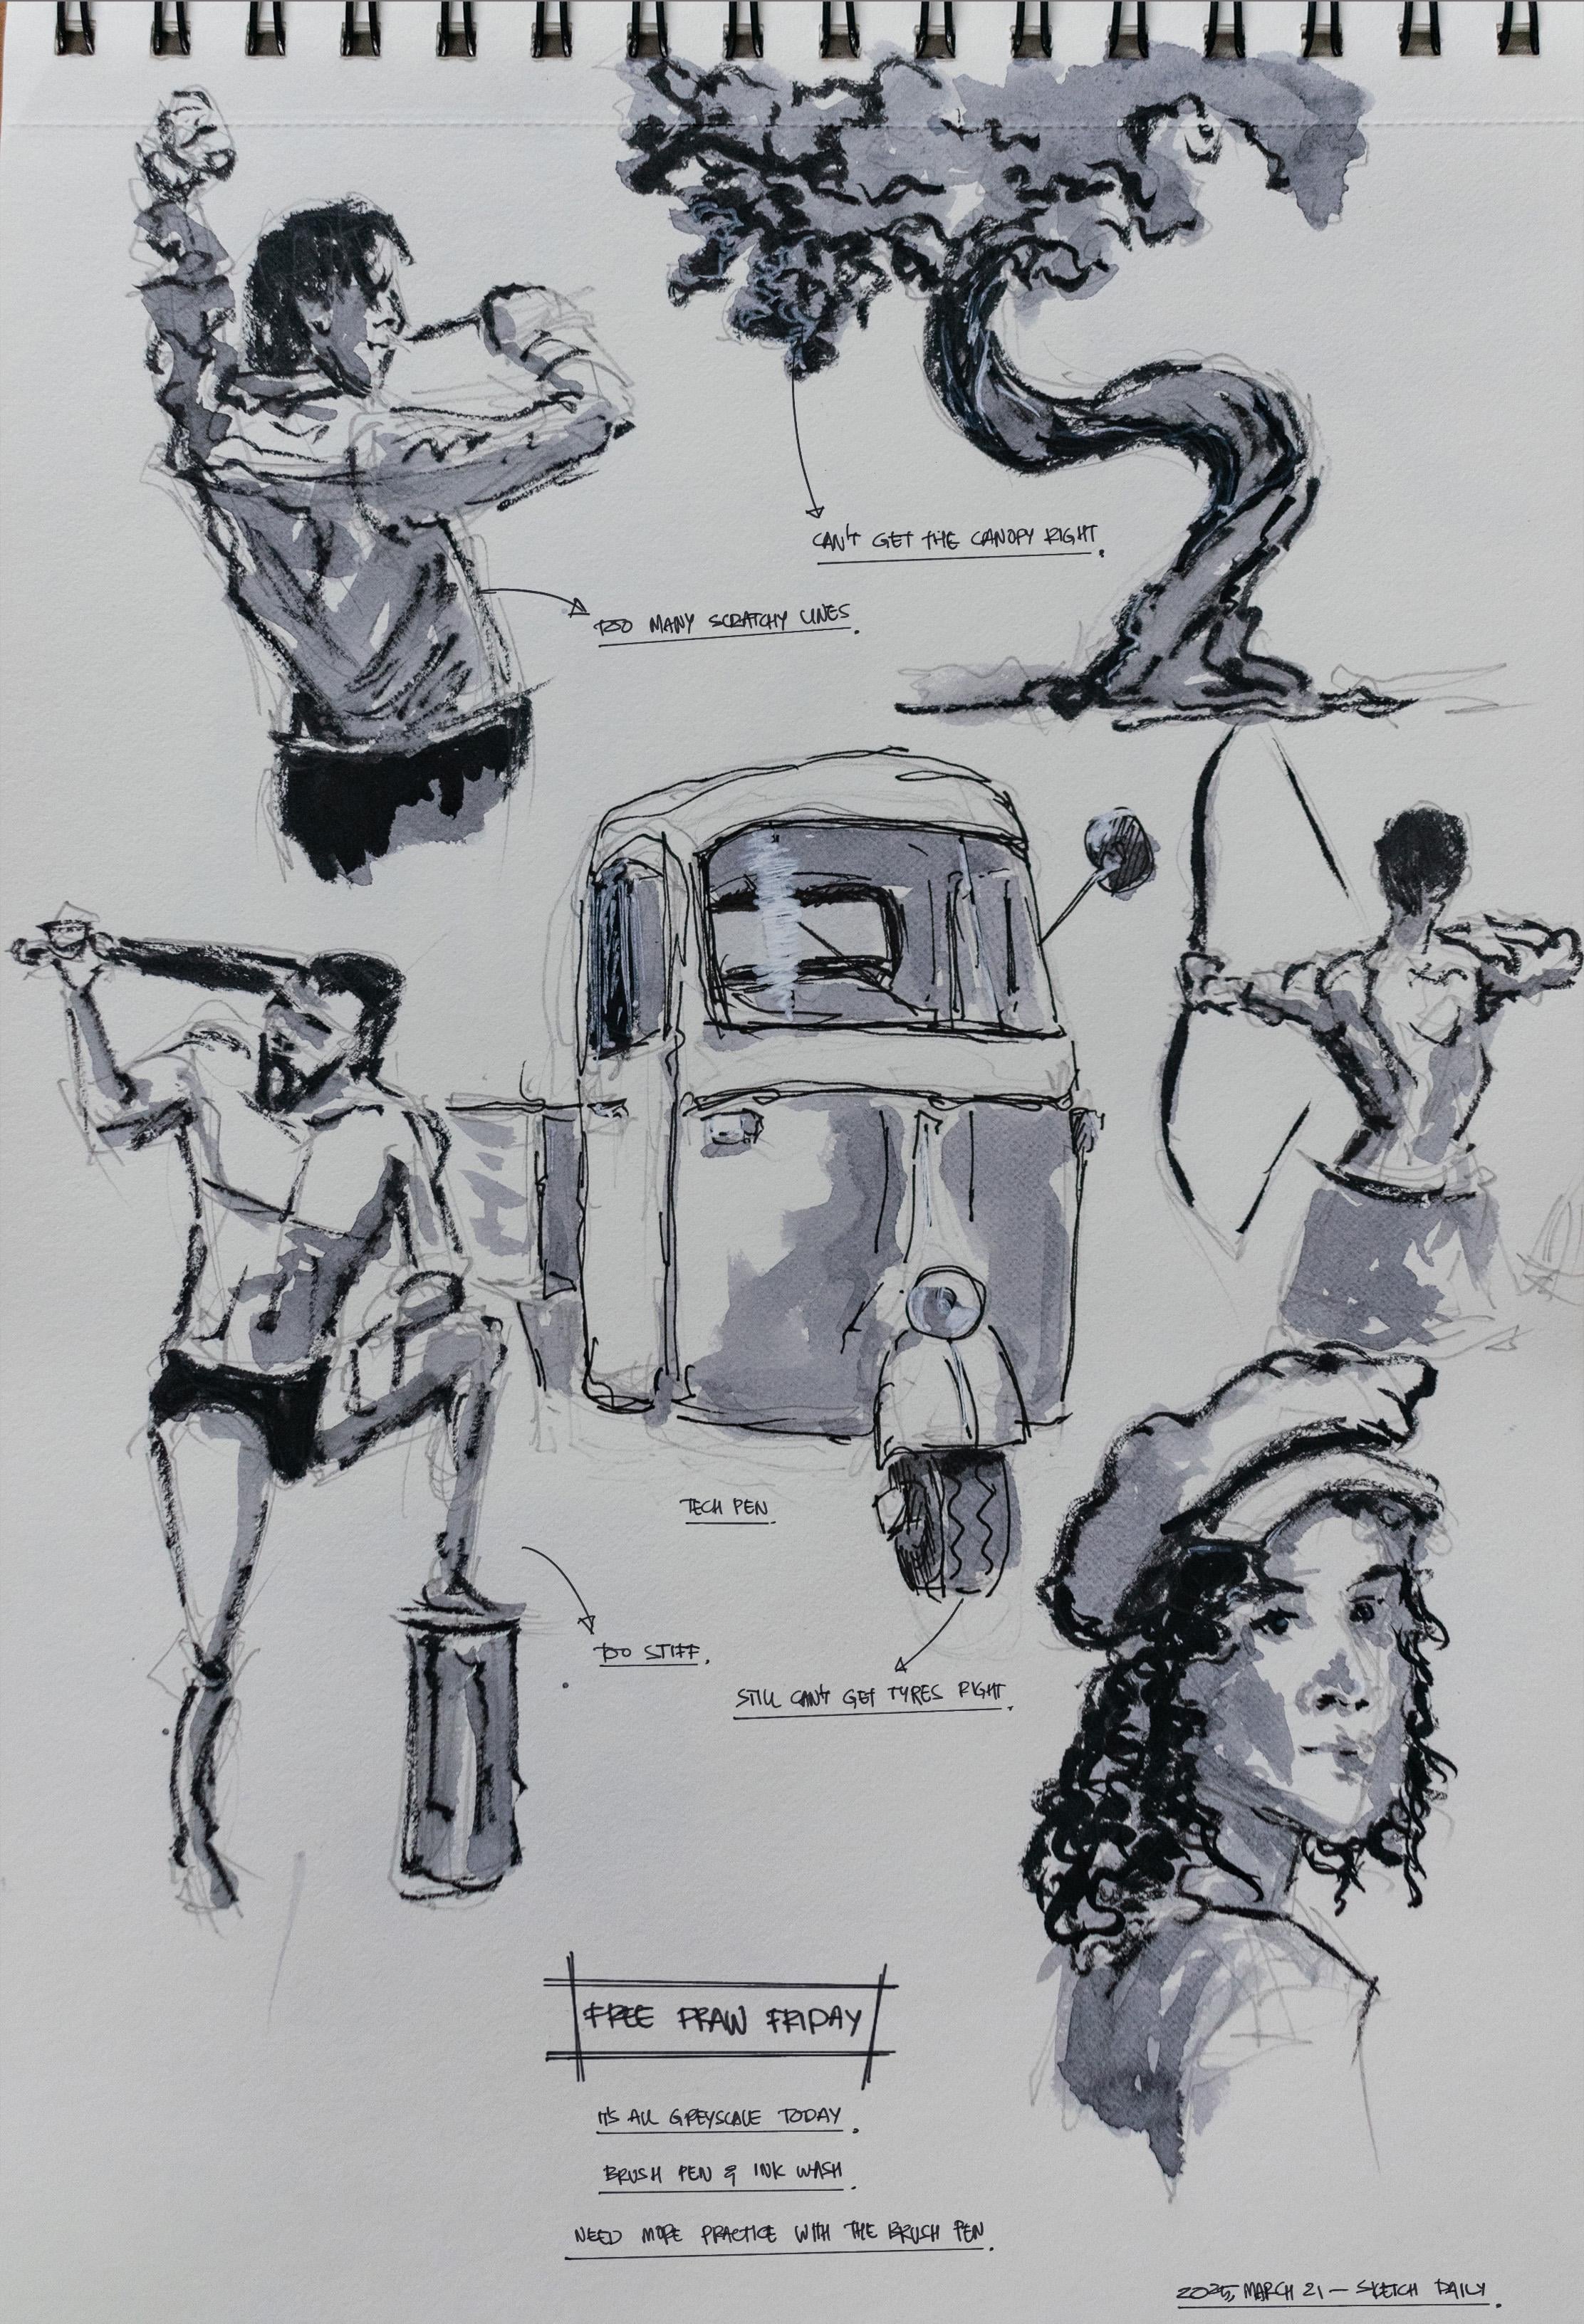 CAN'T GET THE CANOPY RIGHT.
TOO MANY SCRATCHY LINES.
TECH PEN.
TOO STIFF.
STILL CAN'T GET TYRES RIGHT.
FREE DRAW FRIDAY
IT'S ALL GREYSCALE TODAY.
BRUSH PEN & INK WASH.
NEED MORE PRACTICE WITH THE BRUSH PEN.
2025, MARCH 21 — SKETCH DAILY.